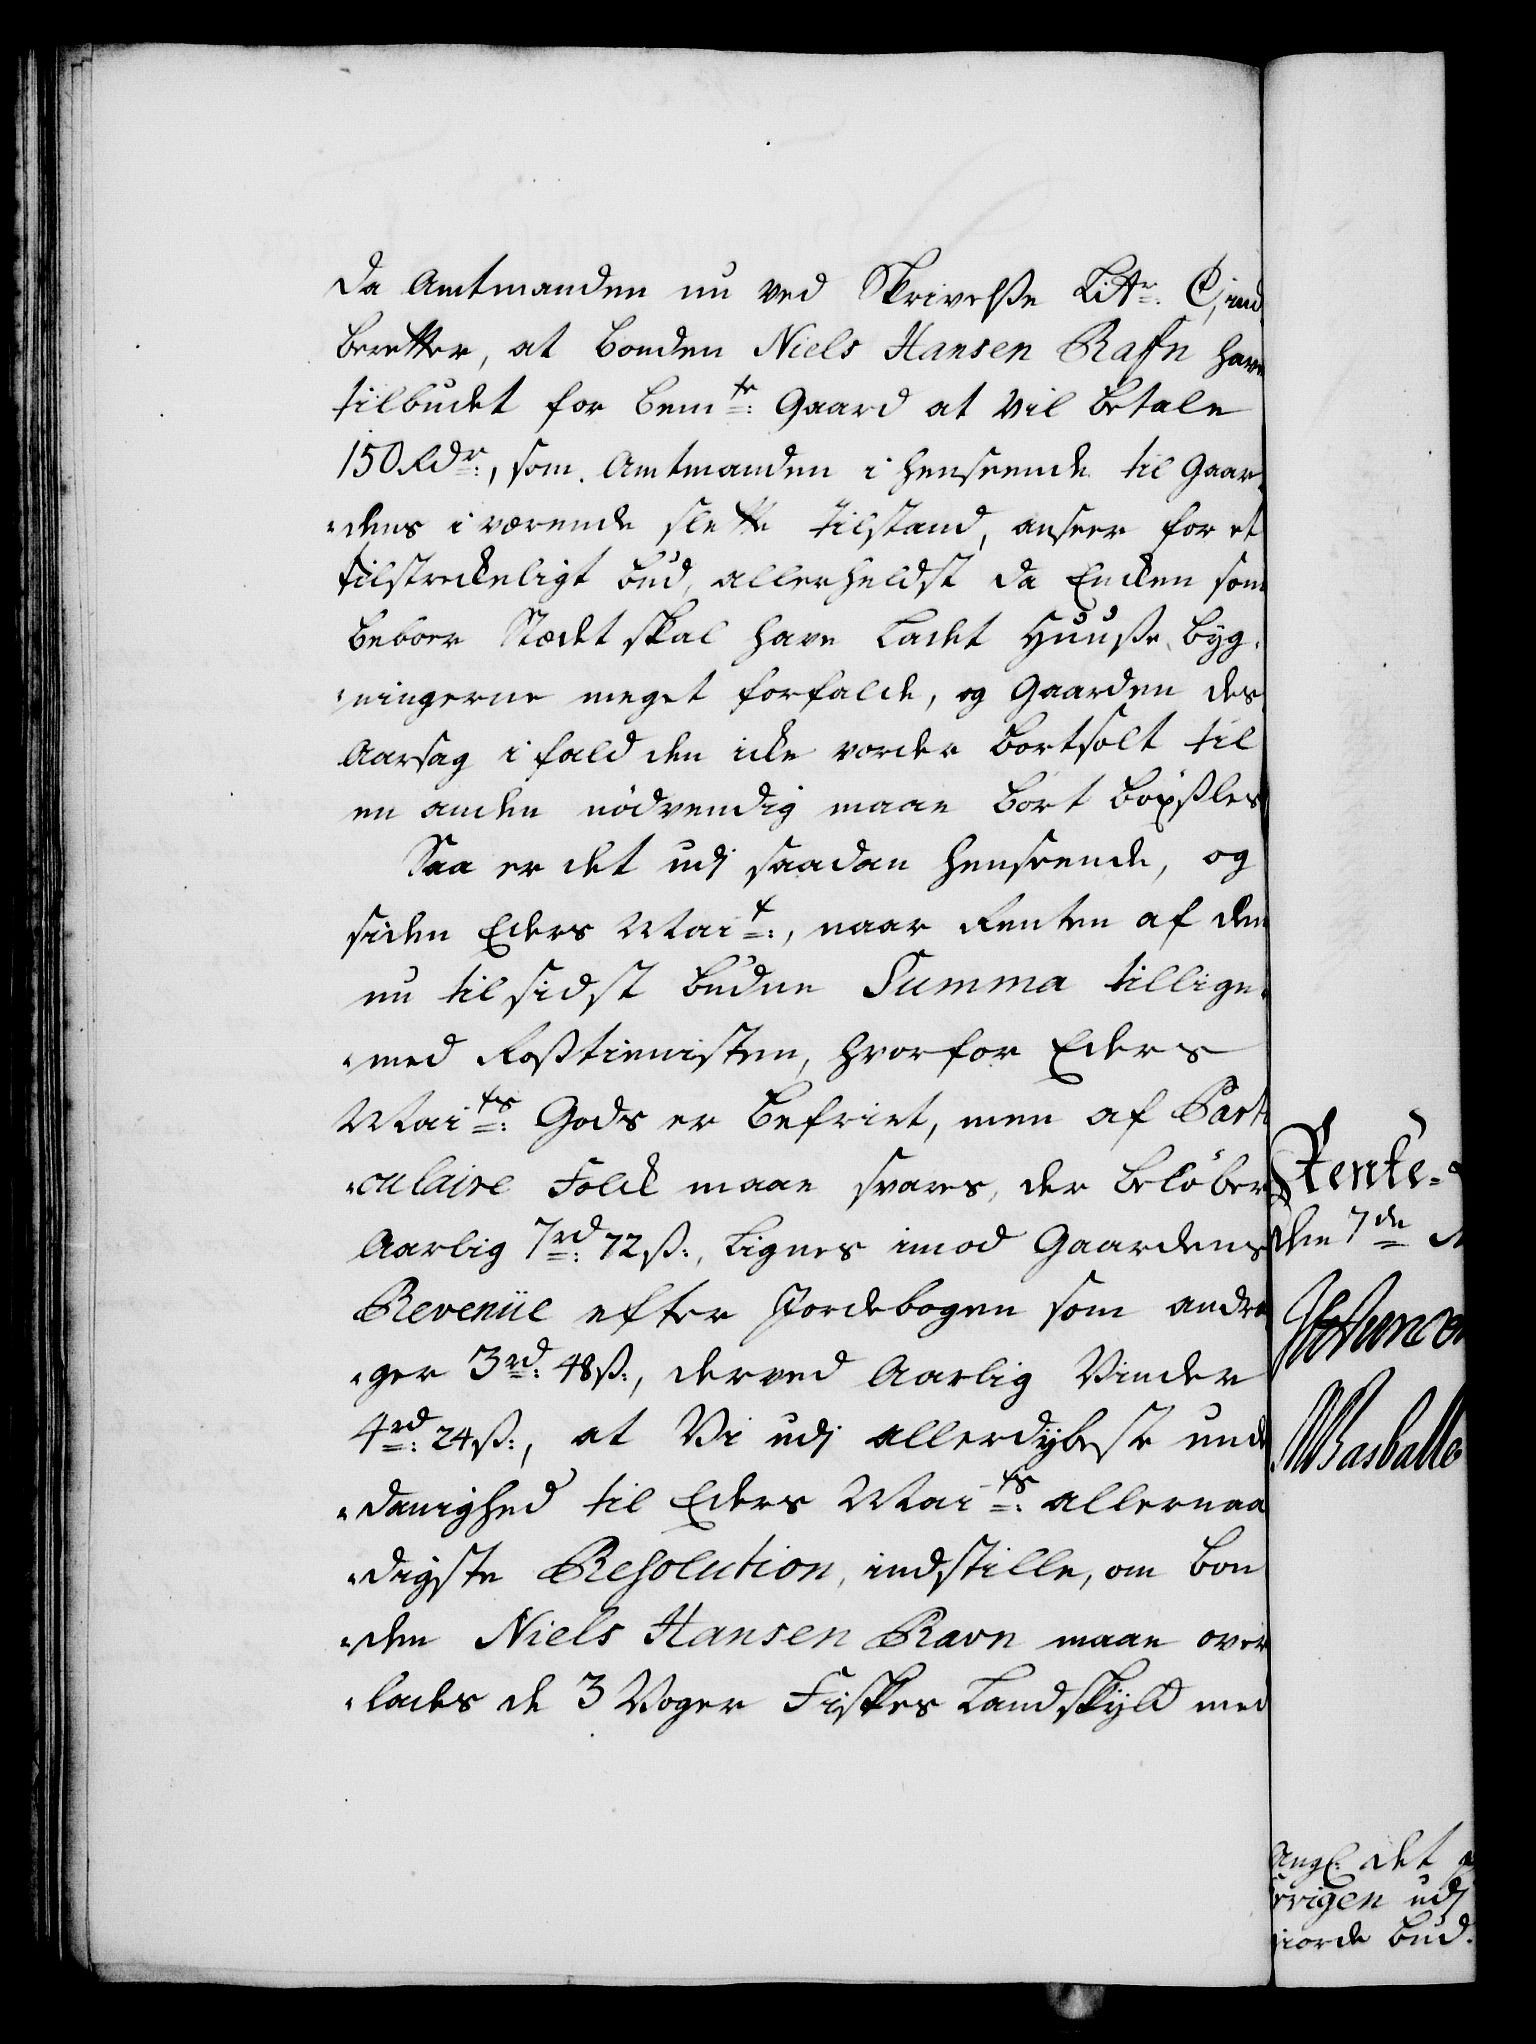 da Amtmanden nu ved Skrivelsse Litr: C, ind
beretter, at bonden Niels Hansen Raffn have
tilbudet for bemte: Gaard at vil betale
150 Rdr:, som Amtmanden i henseende til Gaar-
-dens i værende slette tilstand, anseer for et
tilstreckeligt bud, allerheldst da Encken som
beboer Stædet skal have ladet Huusse byg-
-ningerne meget forfalde, og Gaarden des
Aarsag i fald den icke vorder bortsolt til
en anden nödvendig maae bort böxsles
Saa er det udj saadan henseende, og
siden Eders Mait:, naar Renten af den
nu til sidst budne Summa tillige-
-med Rosstienisten, hvorfor Eders
Maits: Gods er befriet, men af Parti
-culaire Folck maae svares, der belöber
Aarlig 7rd: 72ß:, lignes imod Gaardens
Revenüe efter Jordebogen som andra
-ger 3rd: 48ß:, derved Aarlig Vinder
4rd: 24ß:, at Vi udj allerdybeste unde
-danighed til Eders Maits: allernaa
-digste Resolution, indstille, om bon
-den Niels Hansen Ravn maae over
-lades de 3 Voger Fiskes Landskyld med
Rente-
den 7de
det
udj
bud.